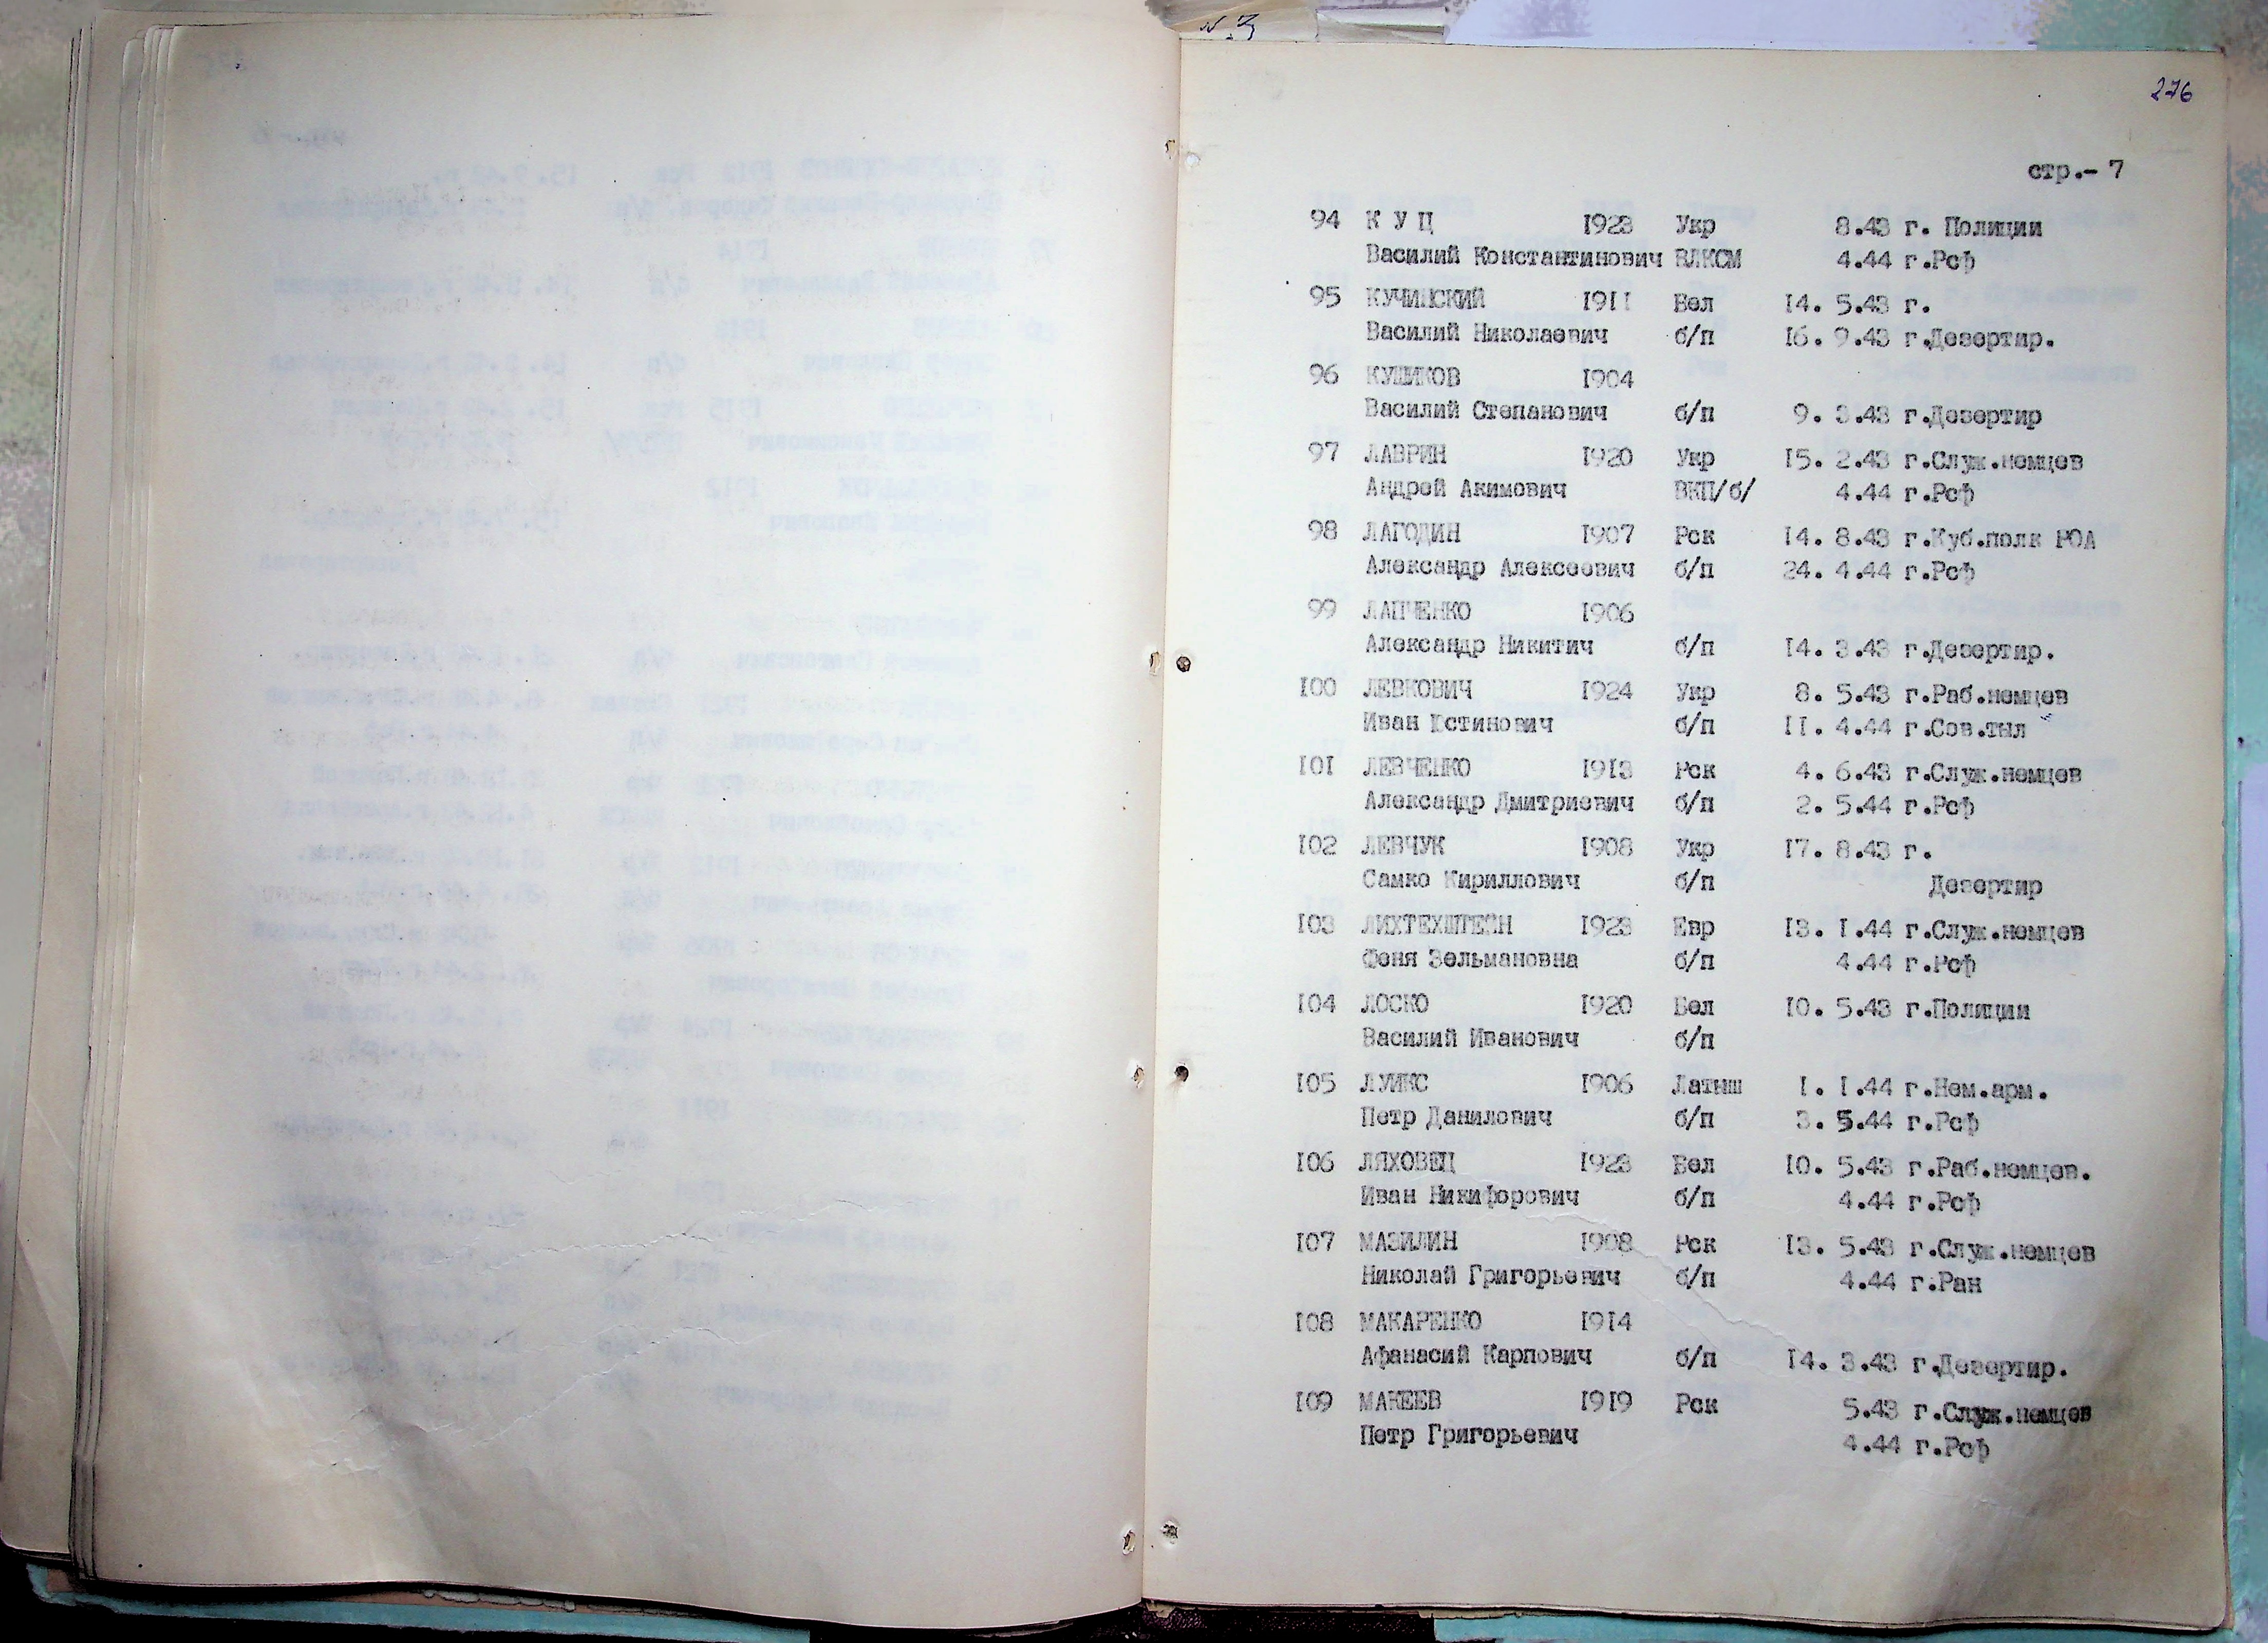 N 3
276
стр.- 7
94 К У Ц 1923 Укр 8.43 г. Полиции
Василий Константинович ВЛКСМ 4.44 г.Рсф
95 КУЧИНСКИЙ 1911 Бел 14. 5.43 г.
Василий Николаевич б/п 16. 9.43 г.Дезертир.
96 КУШИКОВ 1904
Василий Степанович б/п 9. 3.43 г.Дезертир
97 ЛАВРИН 1920 Укр 15. 2.43 г.Служ.немцев
Андрей Акимович ВКП/б/ 4.44 г.Рсф
98 ЛАГОДИН 1907 Рск 14. 8.43 г.Куб.полк РОА
Александр Алексеевич б/п 24. 4.44 г.Рсф
99 ЛАПЧЕНКО 1906
Александр Никитич б/п 14. 3.43 г.Дезертир.
100 ЛЕВКОВИЧ 1924 Укр 8. 5.43 г.Раб.немцев
Иван Юстинович б/п 11. 4.44 г.Сов.тыл
101 ЛЕВЧЕНКО 1913 Рск 4. 6.43 г.Служ.немцев
Александр Дмитриевич б/п 2. 5.44 г.Рсф
102 ЛЕВЧУК 1908 Укр 17. 8.43 г.
Самко Кириллович б/п Дезертир
103 ЛИХТЕХШТЕЙН 1923 Евр 13. 1.44 г.Служ.немцев
Феня Зельмановна б/п 4.44 г.Рсф
104 ЛОСКО 1920 Бел 10. 5.43 г.Полиции
Василий Иванович б/п
105 ЛУИКС 1906 Латыш 1. 1.44 г.Нем.арм.
Петр Данилович б/п 3. 5.44 г.Рсф
106 ЛЯХОВЕЦ 1923 Бел 10. 5.43 г.Раб.немцев.
Иван Никифорович б/п 4.44 г.Рсф
107 МАЗИЛИН 1908 Рск 13. 5.43 г.Служ.немцев
Николай Григорьевич б/п 4.44 г.Ран
108 МАКАРЕНКО 1914
Афанасий Карпович б/п 14. 3.43 г.Дезертир.
109 МАКЕЕВ 1919 Рск 5.43 г.Служ.немцев
Петр Григорьевич 4.44 г.Рсф